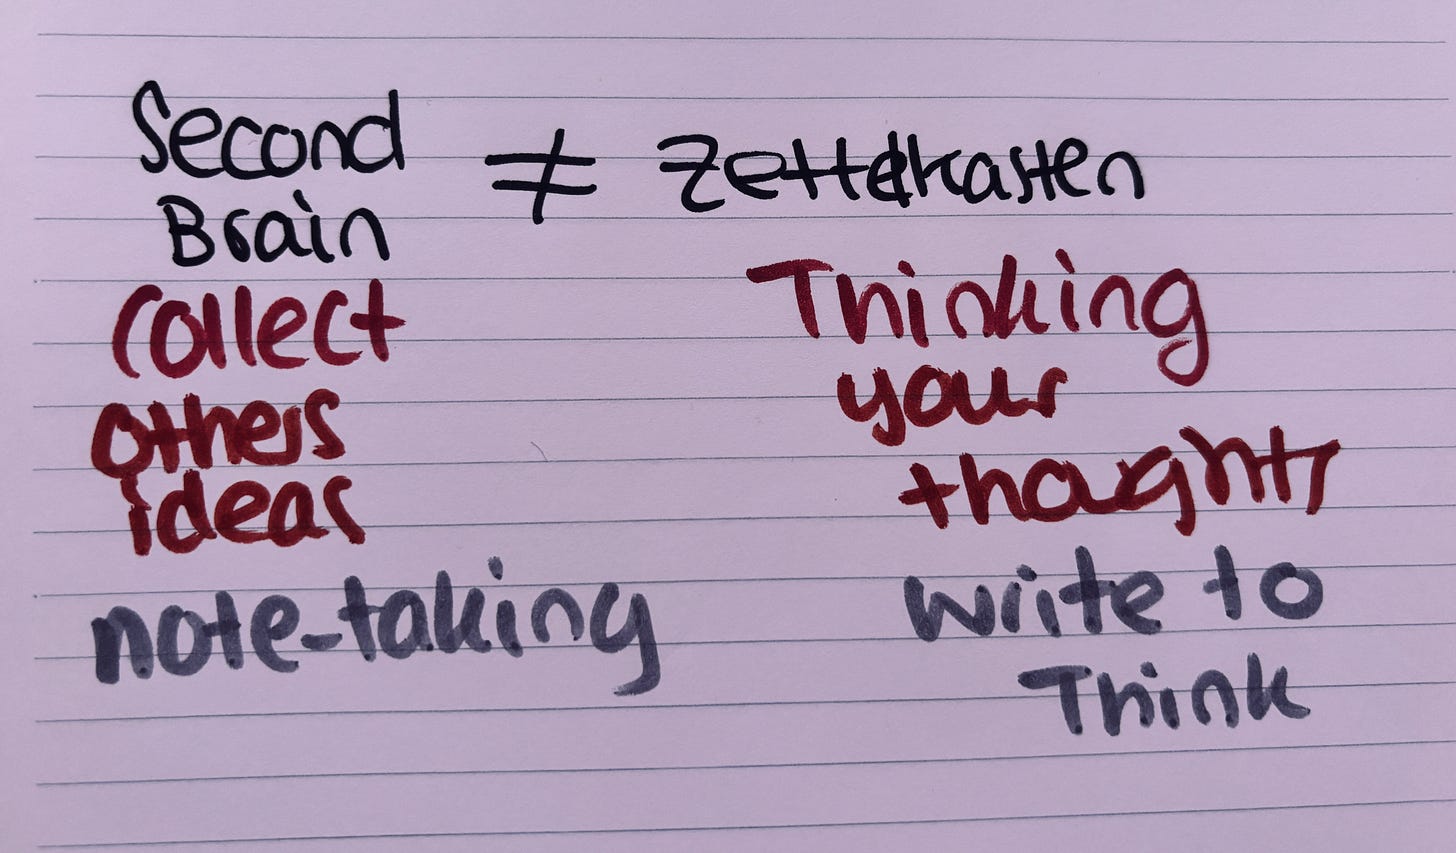 Second
Brain
≠ Zettelkasten
Collect
others
ideas
note-taking
Thinking
your
thoughts
write to
Think